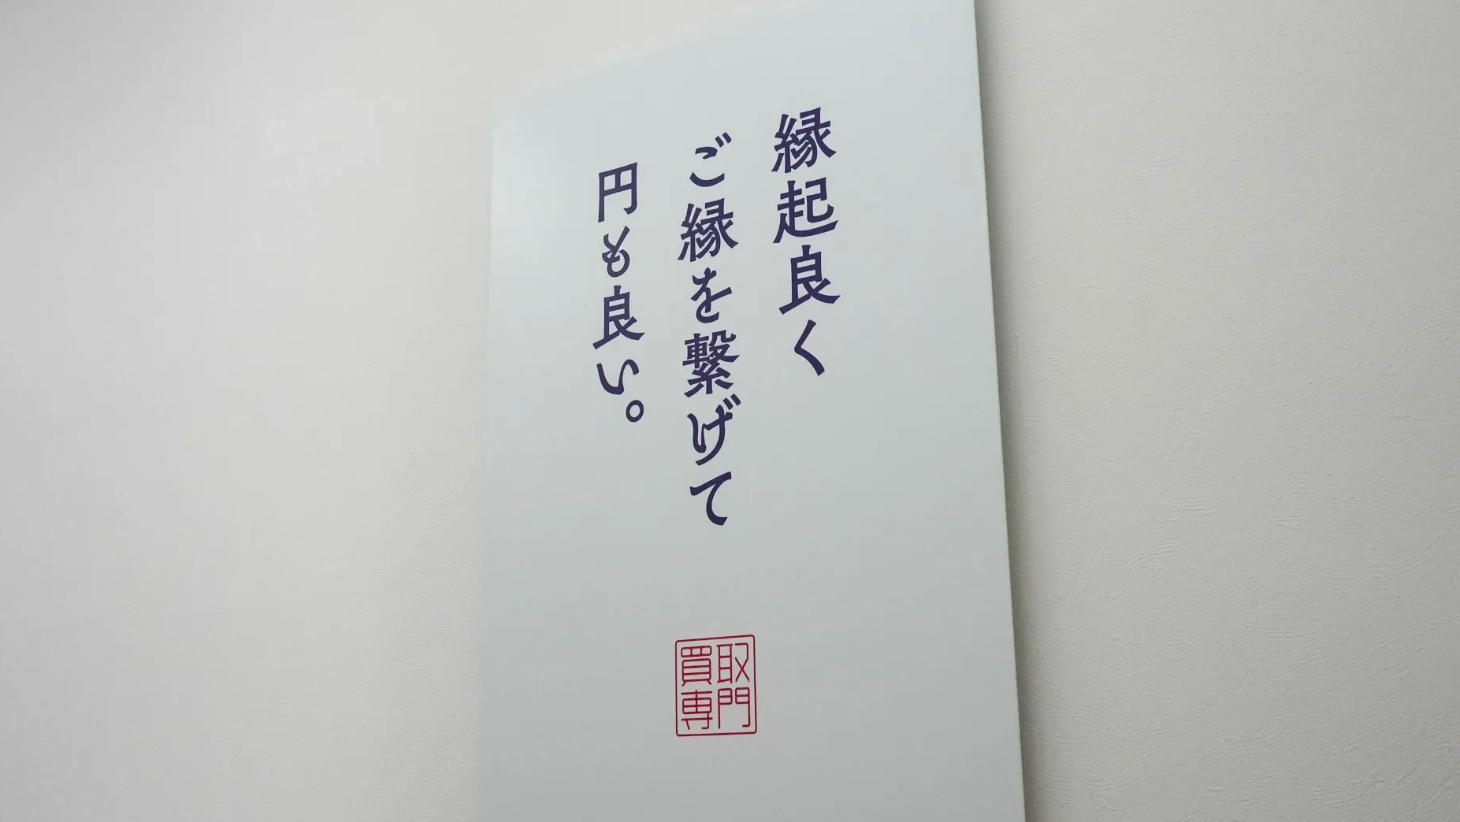 縁起良く
ご縁を繋げて
円も良い。
買取
専門